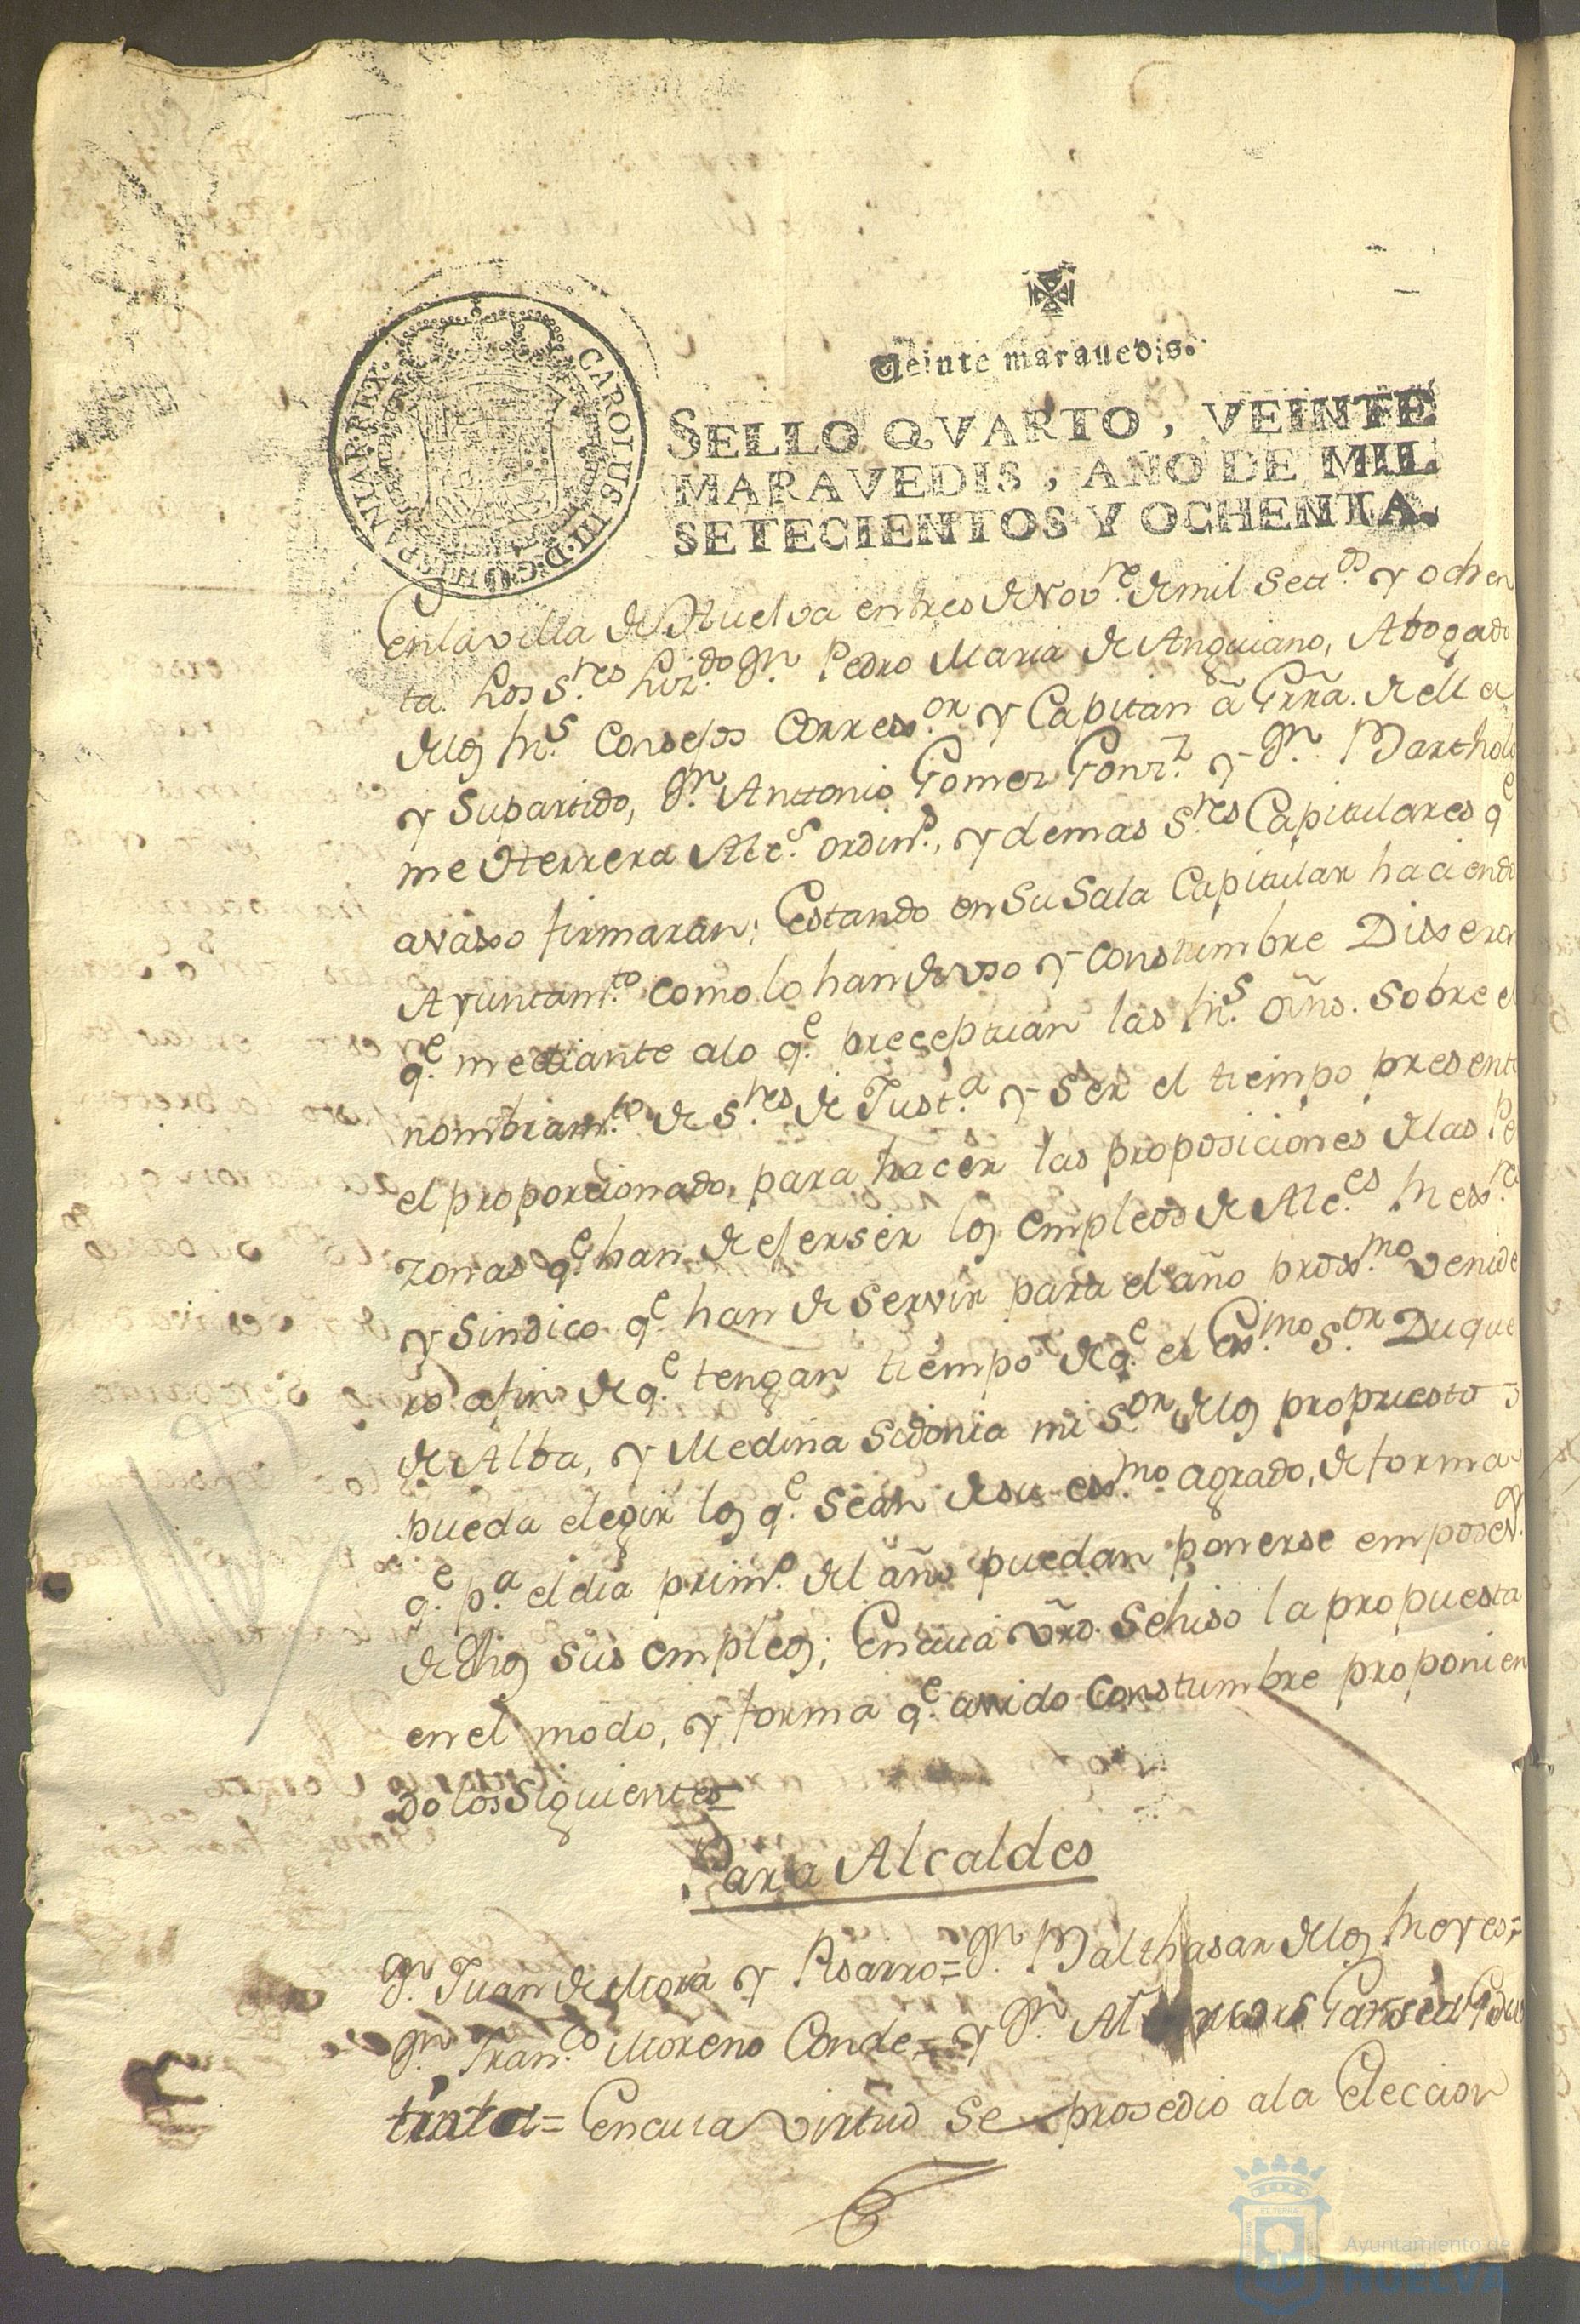 Veinte maravedis.
SELLO QVARTO, VEINTE
MARAVEDIS, AÑO DE MIL
SETECIENTOS Y OCHENTA.
CAROLUS III D G HISPANIAR REX
En la villa de Huelva en tres de Nov.re de mil Sett.os y ochen
ta. Los S.res Liz.do Dn. Pedro Maria de Anguiano, Abogado
de los R.s Consejos Correx.or y Capitan â Grrâ. de ella
y Supartido, Dn. Anttonio Gomez Gonz.z y Dn. Bartholo
me Herrera Alc.s ordin.s, y demas S.res Capitulares q.e
avaxo firmaran; Estando en Su Sala Capitular haciendo
Ayuntam.to como lo han de uso y Constumbre Dixeron
q.e mediante alo q.e preceptuan las R.s Orñs. Sobre el
nombram.to de S.res de Just.a y Ser el tiempo presente
el proporcionado, para hacer las proposiciones de las Pe
rzonas q.e han de exerser los Empleos de Alc.es Rex.res
y Sindico q.e han de Servir para el año prox.mo venide
ro afin de q.e tengan tiempo de q.e el Ex.mo S.or Duque
de Alba, y Medina Sidonia mi S.or de los propuestos
pueda elegir los q.e Sean de su ex.mo agrado, de forma
q.e p.a el dia prim.o del año puedan ponerse en posen.
de dhos sus empleos; En cuia vrd. Se hiso la propuesta
en el modo, y forma q.e avido Constumbre proponien
do los Siguientes=
Para Alcaldes
Dn. Juan de Mora y Pisarro= Dn. Balthasar de los Reyes=
Dn. Fran.co Moreno Conde= y Dn. Garsia
= En cuia virtud Se prosedio a la Eleccion
Ayuntamiento de
HUELVA